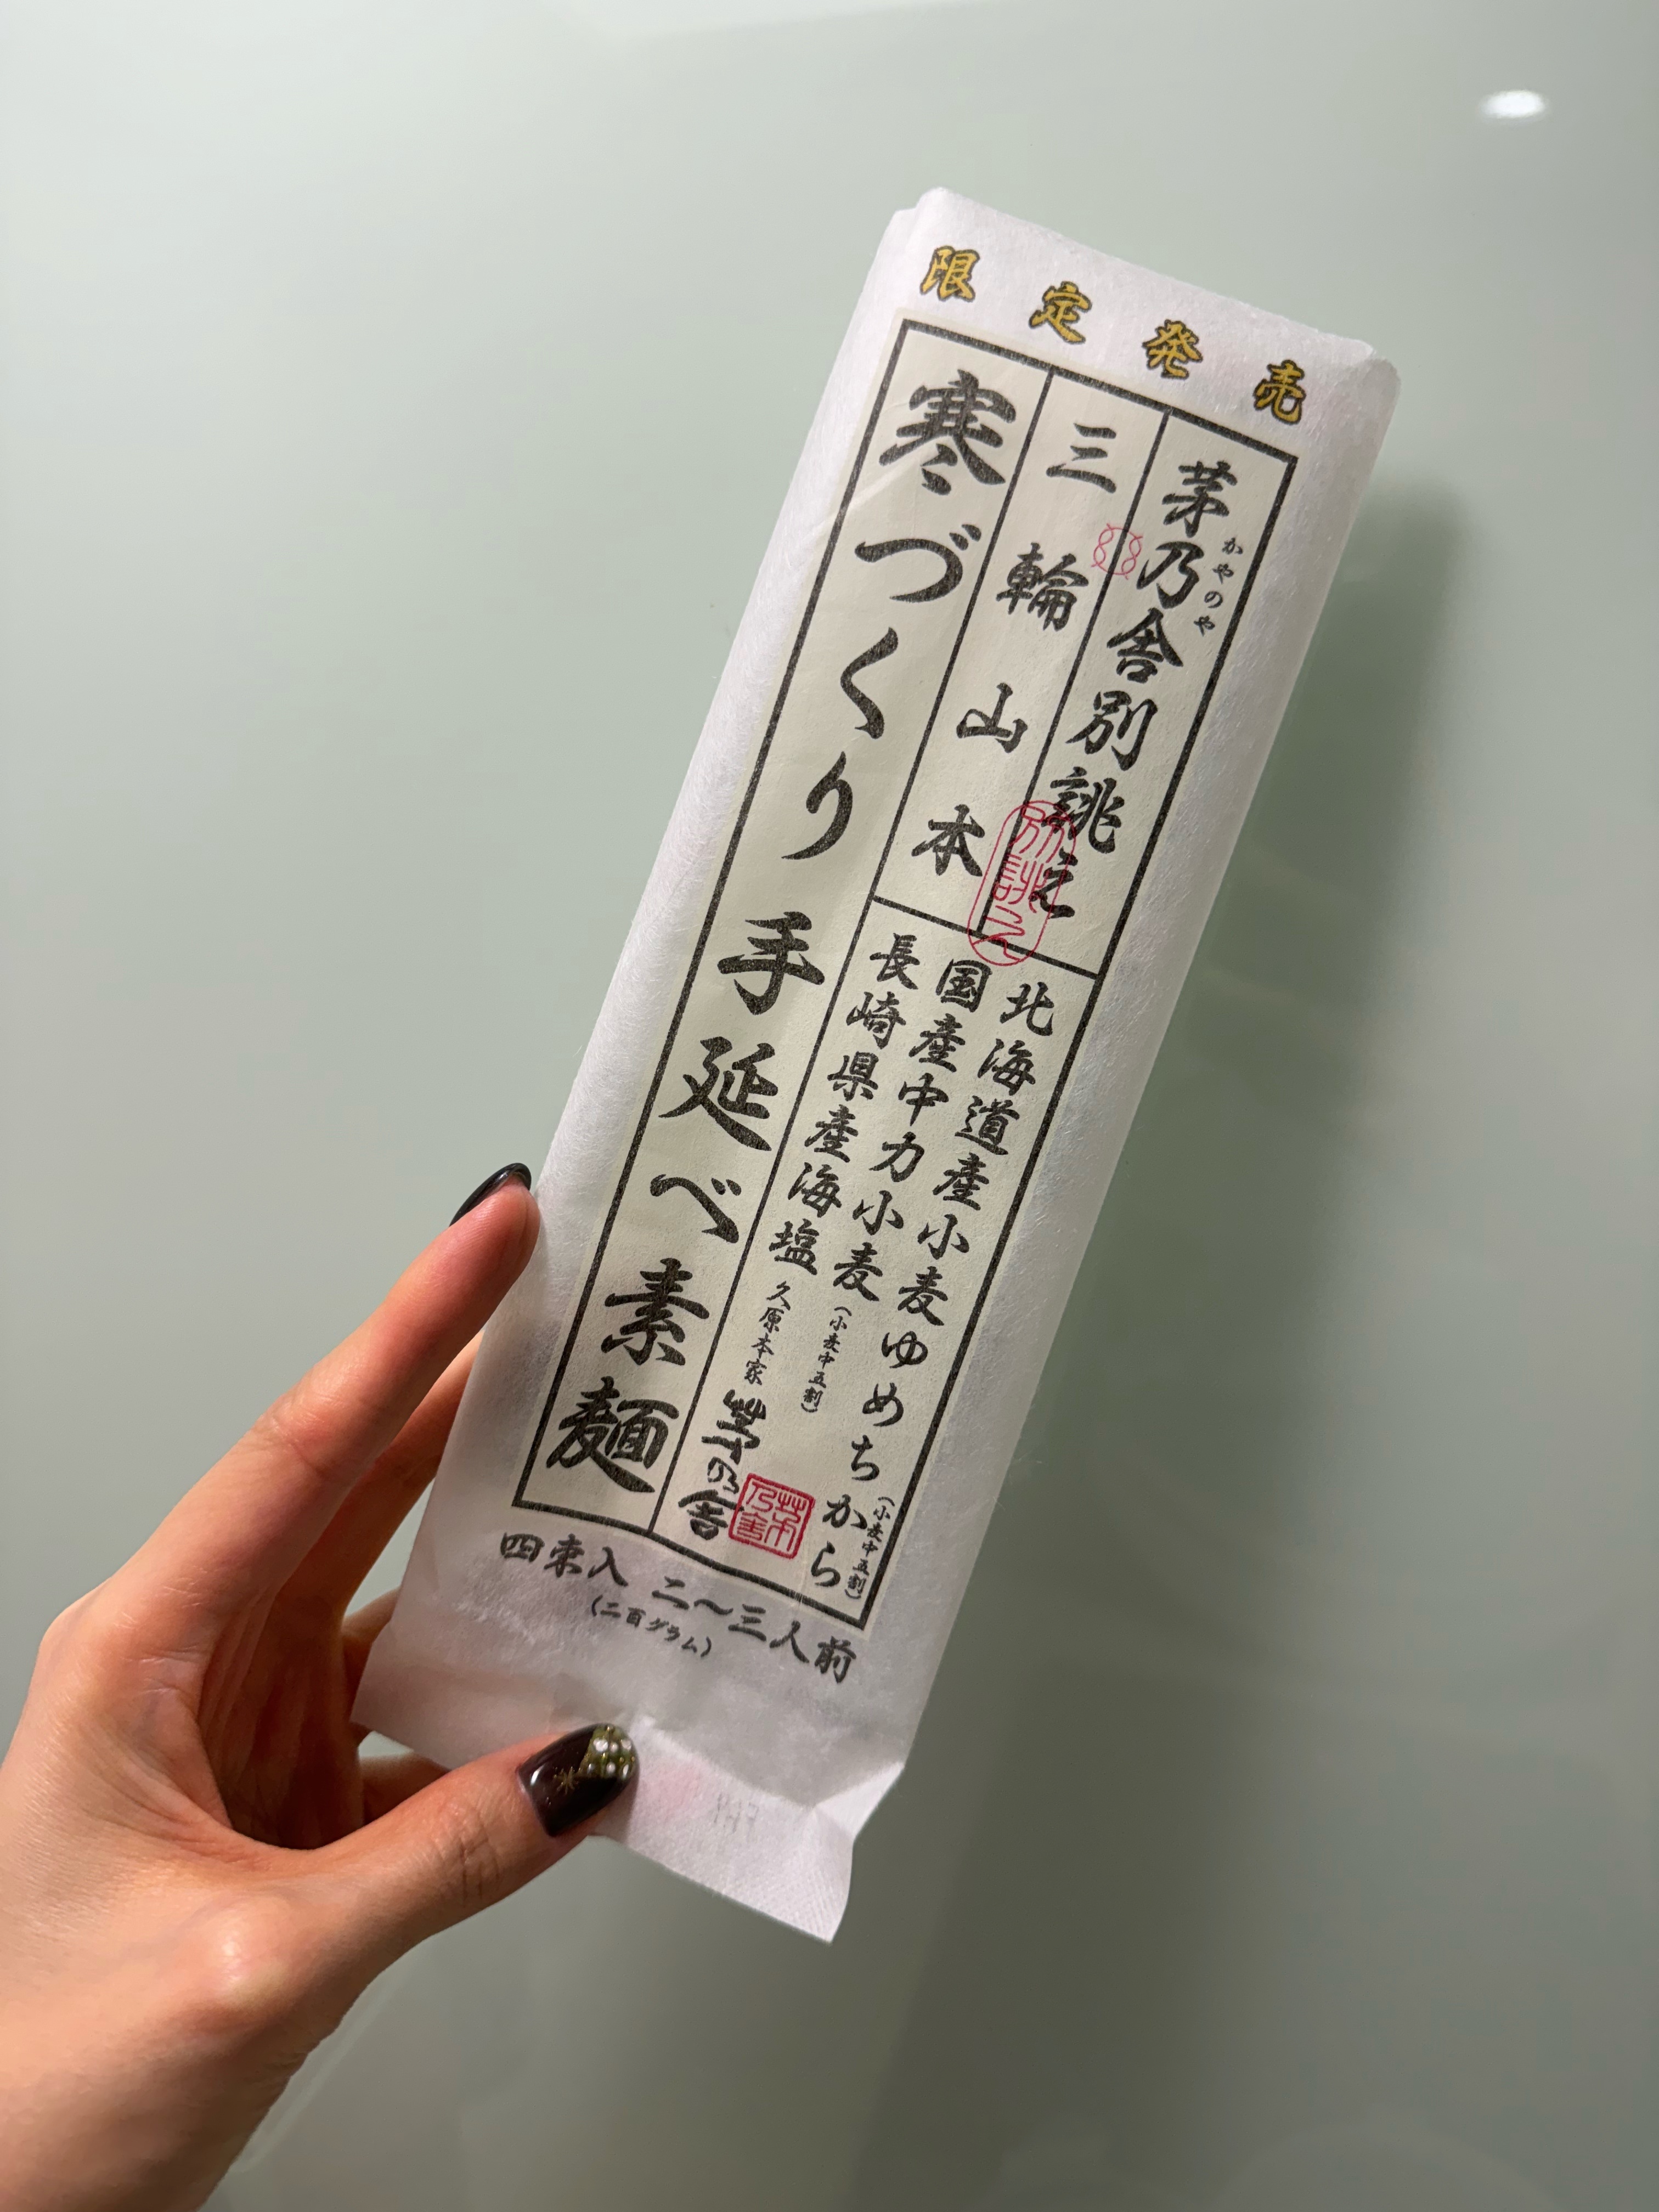 限定発売
茅乃舎別誂之
かやのや
三輪山本
寒づくり手延べ素麺
北海道産小麦ゆめちから
(小麦中五割)
国産中力小麦
(小麦中五割)
長崎県産海塩
久原本家
茅乃舎
茅乃舎
別誂之
四束入 二〜三人前
(二百グラム)